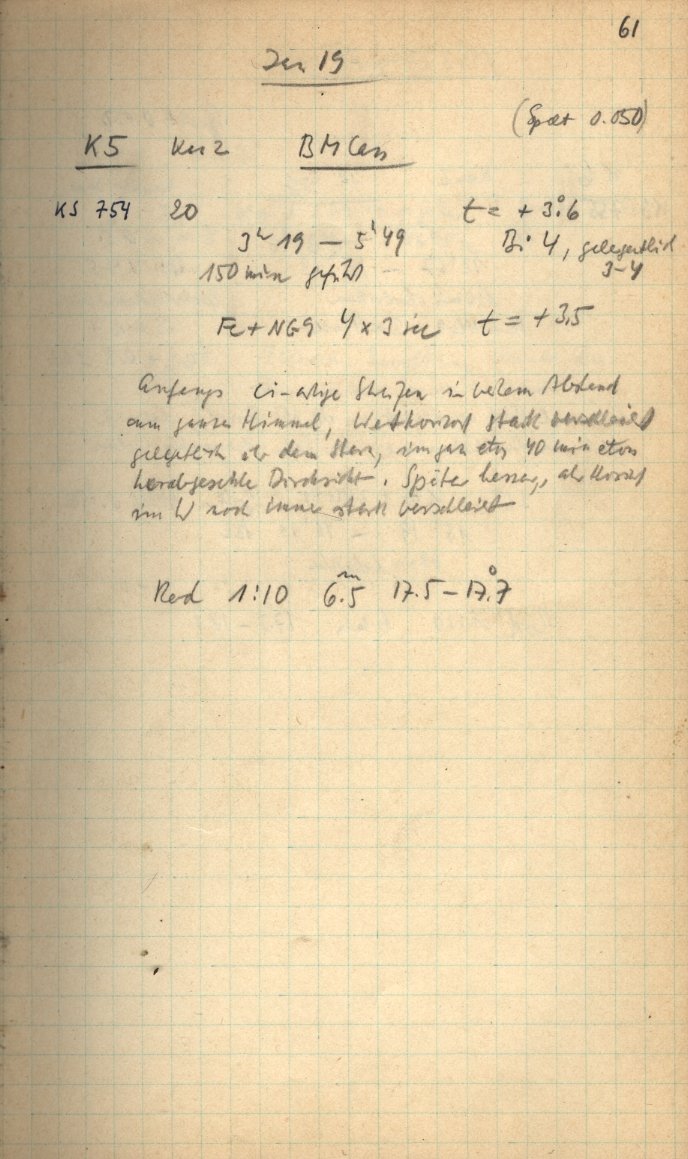 61
Jan 19
(Spalt 0.050)
K5 Kurz BM Cas
KS 754 20 t = + 3°.6
3h 19 — 5h 49 Bi 4, gelegentlich
150 min geführt 3-4
Fe + NG9 4 x 3 sec t = + 3.5
Anfangs Ci-artige Streifen in weitem Abstand
am ganzen Himmel, Westhorizont stark verschleiert
gelegentlich vor dem Stern, im ganzen etwa 40 min etwas
herabgesetzte Durchsicht. Später besser, aber Horizont
im W noch immer stark verschleiert
Red 1:10 6.5m 17.5 — 17°.7